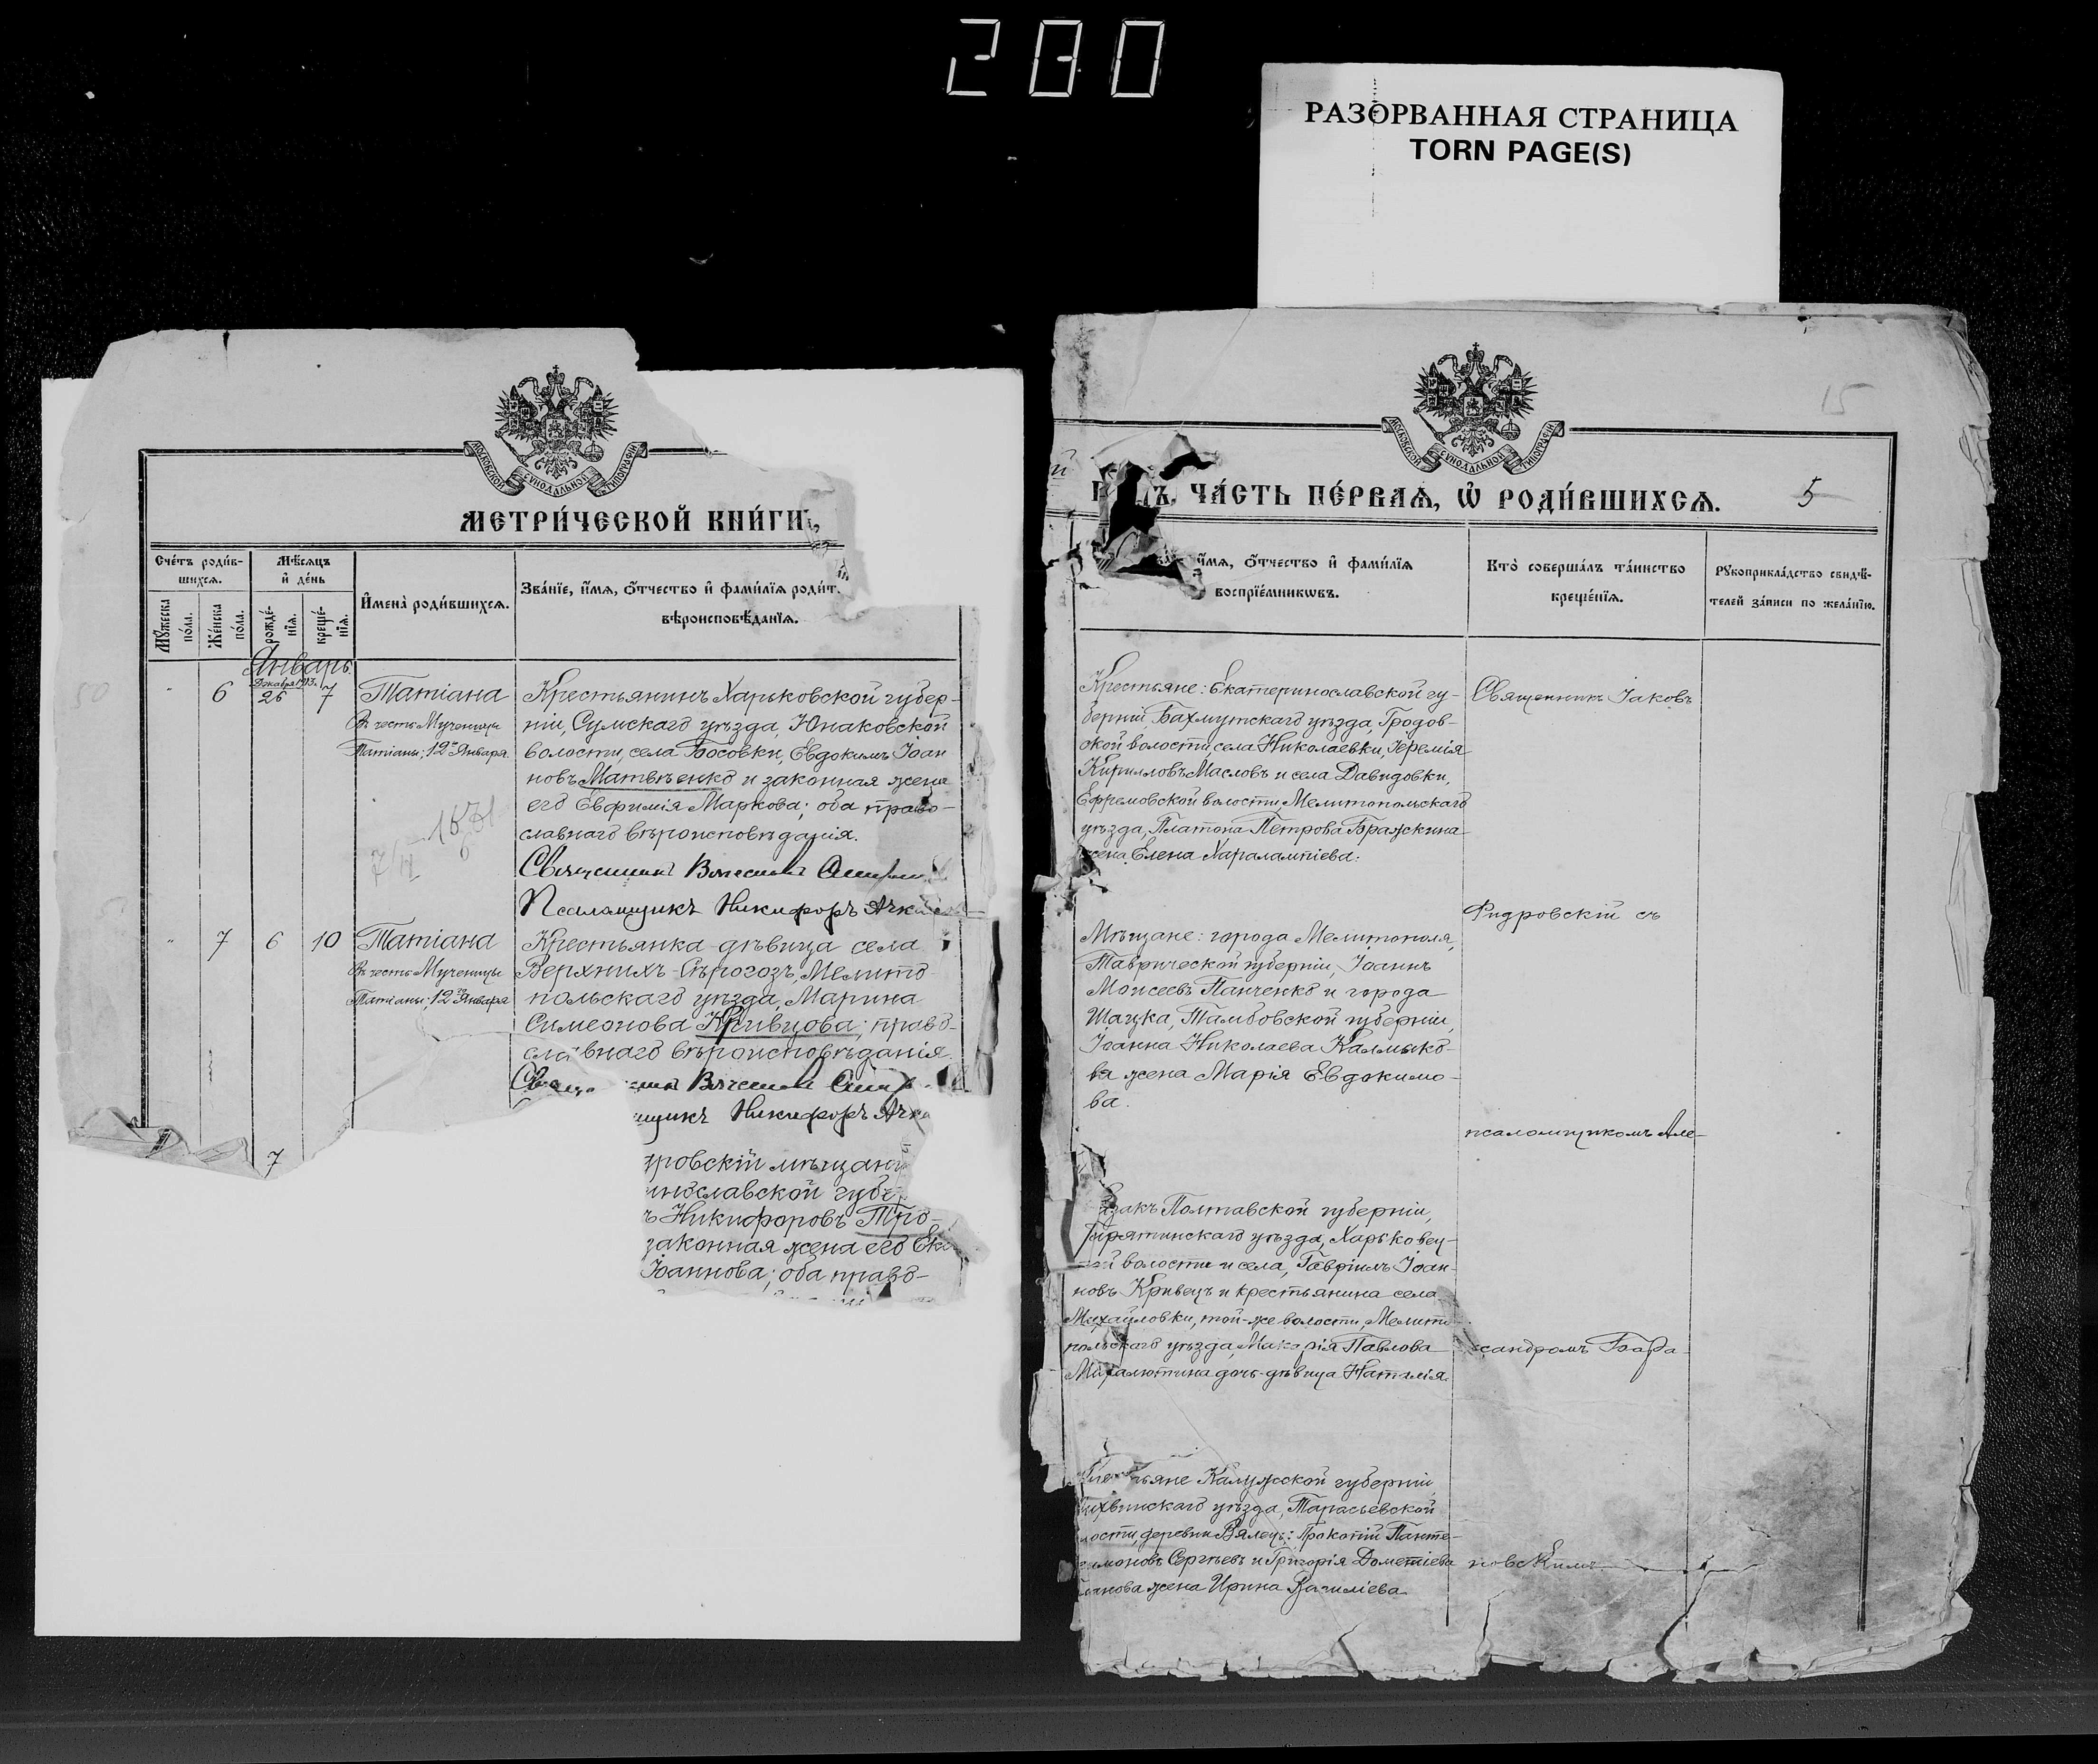 280
РАЗОРВАННАЯ СТРАНИЦА
TORN PAGE(S)
МОСКОВСКОЙ СѴНОДАЛЬНОЙ ТИПОГРАФІИ
МЕТРИ́ЧЕСКОЙ КНИ́ГИ,
Сче́тъ роди́в-
шихсѧ.
Мѣ́сѧцъ
и҆ де́нь
Мꙋ́жеска
по́ла.
Же́нска
по́ла.
рожде́-
нїѧ.
креще́-
нїѧ.
И҆мена̀ роди́вшихсѧ.
Зва́нїе, и҆́мѧ, ѻ҆́тчество и҆ фами́лїѧ роди́т.
вѣроисповѣ́данїѧ.
Январь.
Декабря 1913 г.
6 26 7 Татіана
Въ честь Мученицы
Татіаны; 12го Января.
Крестьянинъ Харьковской губер-
ніи, Сумскаго уѣзда, Юнаковской
волости, села Босовки, Евдокимъ Іоан
новъ Матвѣенко и законная жена
его Евфимія Маркова; оба право-
славнаго вѣроисповѣданія.
Священникъ
Псаломщикъ Никифоръ
7 6 10 Татіана
Въ честь Мученицы
Татіаны; 12го Января
Крестьянка-дѣвица села
Верхнихъ-Сѣрогозъ, Мелито
польскаго уѣзда, Марина
Симеонова Кривцова; право-
славнаго вѣроисповѣданія.
щикъ Никифоръ
7
ровскій мѣщани
инославской губер
ъ Никифоровъ Тро-
законная жена его Ека
Іоаннова; оба право-
15
МОСКОВСКОЙ СѴНОДАЛЬНОЙ ТИПОГРАФІИ
ЧА́СТЬ ПЕ́РВАѦ, Ѡ҆ РОДИ́ВШИХСѦ.
5
и҆́мѧ, ѻ҆́тчество и҆ фами́лїѧ
воспрїе́мникѡвъ.
Кто̀ соверша́лъ та́инство
креще́нїѧ.
Рꙋкоприкла́дство свидѣ́-
телей за́писи по жела́нїю.
Крестьяне: Екатеринославской гу-
берніи Бахмутскаго уѣзда, Гродов-
ской волости, села Николаевки, Іеремія
Кирилловъ Масловъ и села Давидовки,
Ефремовской волости, Мелитопольскаго
уѣзда, Платона Петрова Бражкина
жена Елена Харалампіева.
Священникъ Іаковъ
Мѣщане: города Мелитополя,
Таврической губерніи, Іоаннъ
Моисеевъ Панченко и города
Шацка, Тамбовской губерніи,
Іоанна Николаева Калмыко-
ва жена Марія Евдокимо-
ва.
Фидровскій съ
псаломщикомъ Але-
Козакъ Полтавской губерніи,
Пирятинскаго уѣзда, Харьковец-
кой волости и села, Гавріилъ Іоан-
новъ Кривецъ и крестьянина села
Михайловки, той-же волости, Мелито
польскаго уѣзда, Макарія Павлова
дочь-дѣвица Наталія.
ксандромъ
Крестьяне Калужской губерніи
Лихвинскаго уѣзда,
лости, деревни Вялецъ: Прокопій Панте-
леимоновъ Сергѣевъ и Григорія Дометіева
жена Ирина
новскимъ